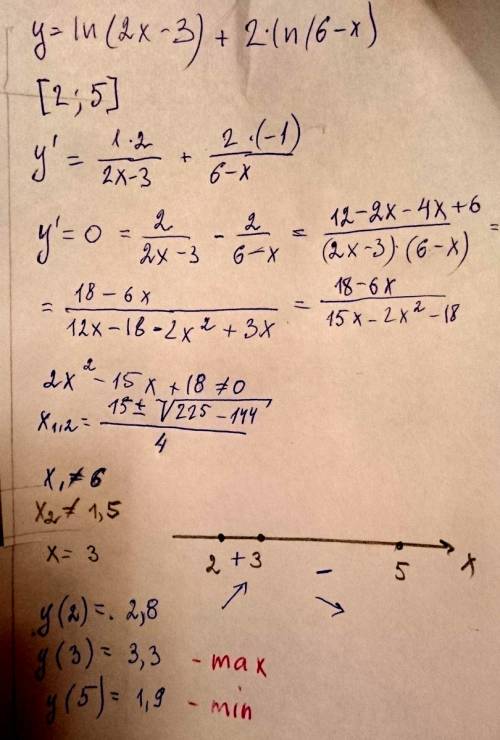 y = ln(2x-3) + 2·ln(6-x)
[2; 5]
y' = 1·2/(2x-3) + 2·(-1)/(6-x)
y' = 0 = 2/(2x-3) - 2/(6-x) = (12-2x-4x+6)/((2x-3)·(6-x)) =
= (18-6x)/(12x-18-2x²+3x) = (18-6x)/(15x-2x²-18)
2x² - 15x + 18 ≠ 0
x₁,₂ = (15±√(225-144))/4
x₁ ≠ 6
x₂ ≠ 1,5
x = 3
2 + 3 - 5 x
y(2) = 2,8
y(3) = 3,3 - max
y(5) = 1,9 - min